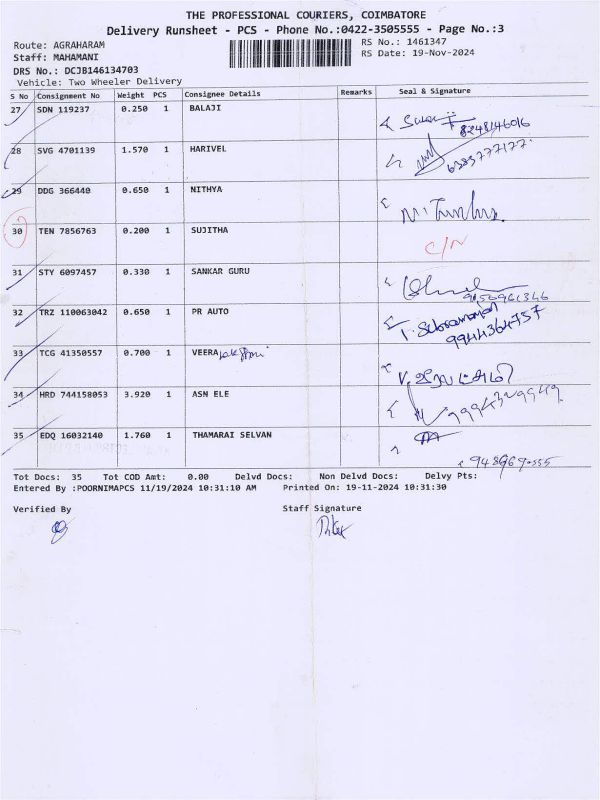 THE PROFESSIONAL COURIERS, COIMBATORE
Delivery Runsheet - PCS - Phone No.:0422-3505555 - Page No.:3
Route: AGRAHARAM
RS No.: 1461347
Staff: MAHAMANI
RS Date: 19-Nov-2024
DRS No.: DCJB146134703
Vehicle: Two Wheeler Delivery
S No Consignment No Weight PCS Consignee Details Remarks Seal & Signature
27 SDN 119237 0.250 1 BALAJI
8248146016
28 SVG 4701139 1.570 1 HARIVEL
6383777177
29 DDG 366440 0.650 1 NITHYA
30 TEN 7856763 0.200 1 SUJITHA C/N
31 STY 6097457 0.330 1 SANKAR GURU
32 TRZ 110063042 0.650 1 PR AUTO T. Subramanian
9944364757
33 TCG 41350557 0.700 1 VEERA
34 HRD 744158053 3.920 1 ASN ELE
35 EDQ 16032140 1.760 1 THAMARAI SELVAN
Tot Docs: 35 Tot COD Amt: 0.00 Delvd Docs: Non Delvd Docs: Delvy Pts:
Entered By :POORNIMAPCS 11/19/2024 10:31:10 AM Printed On: 19-11-2024 10:31:30
Verified By Staff Signature